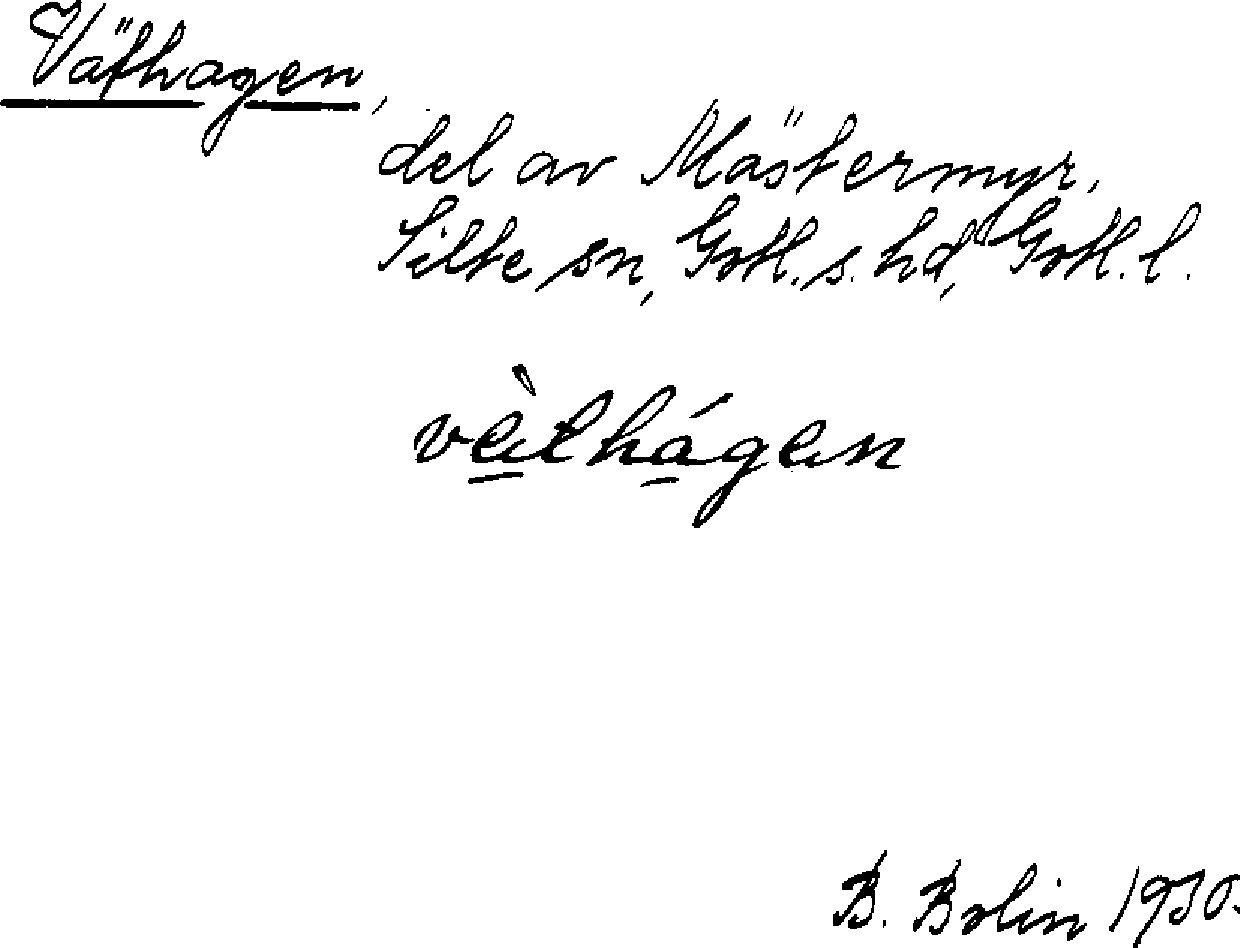 Väthagen,
del av Mästermyr,
Silte sn, Gotl. s. hd, Gotl. l.
B. Bolin 1930.